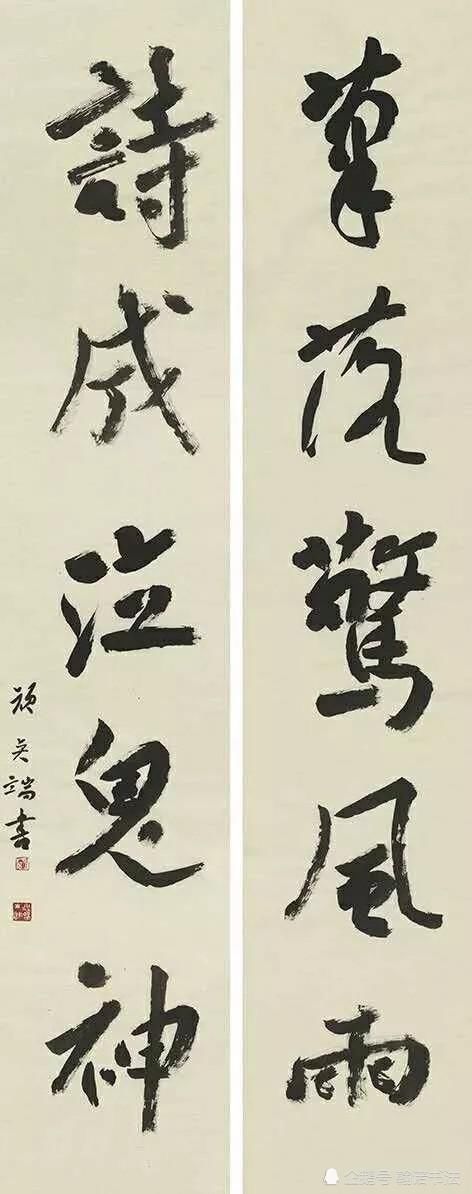 筆落驚風雨
詩成泣鬼神
端書
企鹅号 书法